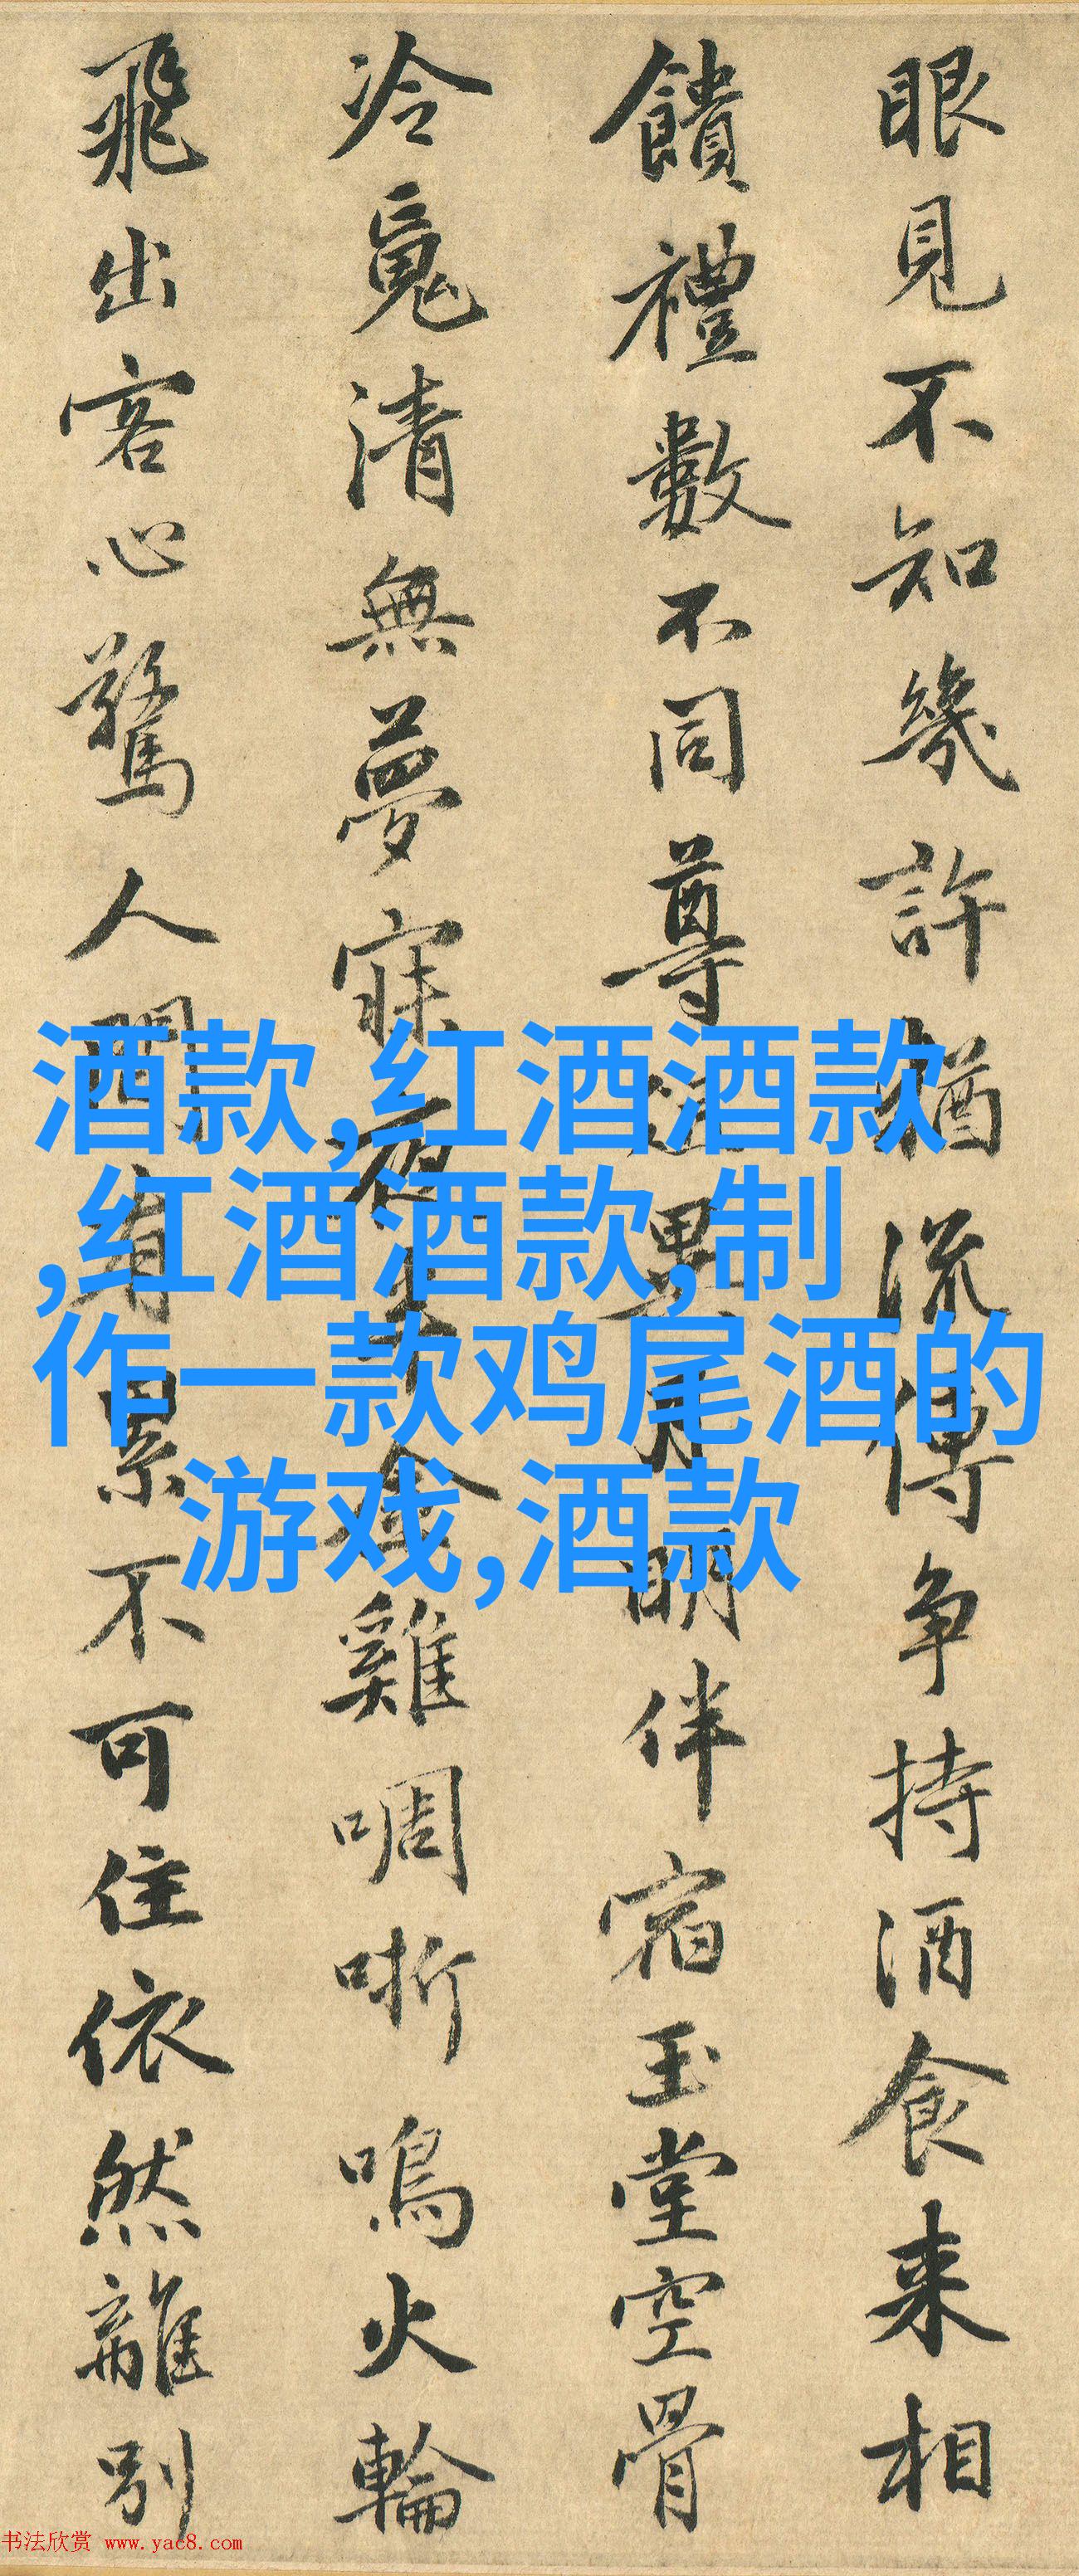 眼見不知幾許猶流傳争持酒食来相
饋禮數不同尊俎異月明伴宿玉堂空骨
冷魂清無夢寐夜半金雞啁哳鳴火輪
飛出客心驚人間有累不可住依然離別
酒款,红酒酒款
,红酒酒款,制
作一款鸡尾酒的
游戏,酒款
书法欣赏 www.yac8.com